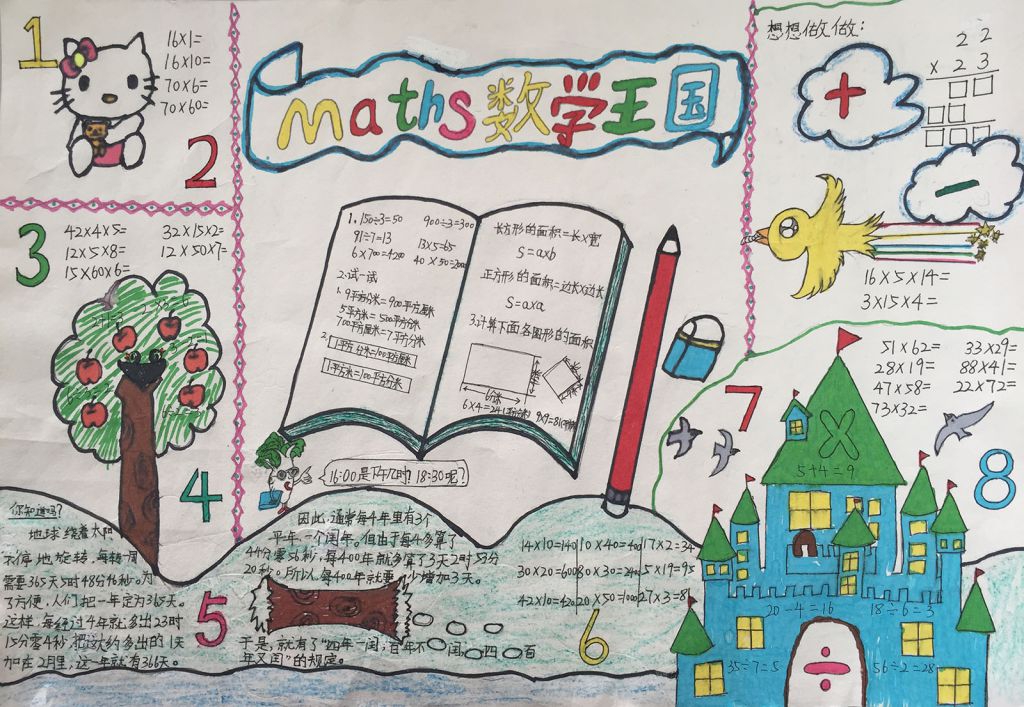 1
16×1=
16×10=
70×6=
70×60=
2
Maths数学王国
想想做做:
22
×23
+
−
3
42×4×5=
32×15×2=
12×5×8=
12×50×7=
15×60×6=
16×5×14=
3×15×4=
1.150÷3=50
900÷3=300
91÷7=13
13×5=65
6×700=4200
40×50=2000
2.试一试
1.9平方分米=900平方厘米
5平方米=500平方分米
700平方厘米=7平方分米
2.1平方分米=100平方厘米
1平方米=100平方分米
长方形的面积=长×宽
S=a×b
正方形的面积=边长×边长
S=a×a
3.计算下面各图形的面积
6分米
6×4=24(平方分米)
16:00是下午几时?18:30呢?
4
你知道吗?
地球绕着太阳
不停地旋转,每转一周
需要365天5时48分46秒。为
了方便,人们把一年定为365天。
这样,每经过4年就多出23时
15分零4秒,把这约多出的1天
加在2月里,这一年就有366天。
5
因此,通常每4年里有3个
平年、一个闰年。但由于每4年多算了
44分零56秒,每400年就多算了3天2时53分
20秒。所以,每400年就要少增加3天。
于是,就有了“四年一闰,百年不闰,四百
年又闰”的规定。
6
14×10=140
10×40=400
17×2=34
30×20=600
80×30=240
5×19=95
42×10=420
20×50=1000
27×3=81
7
51×62=
33×29=
28×19=
88×41=
47×58=
22×72=
73×32=
8
×
5+4=9
20-4=16
18÷6=3
35÷7=5
56÷2=28
÷